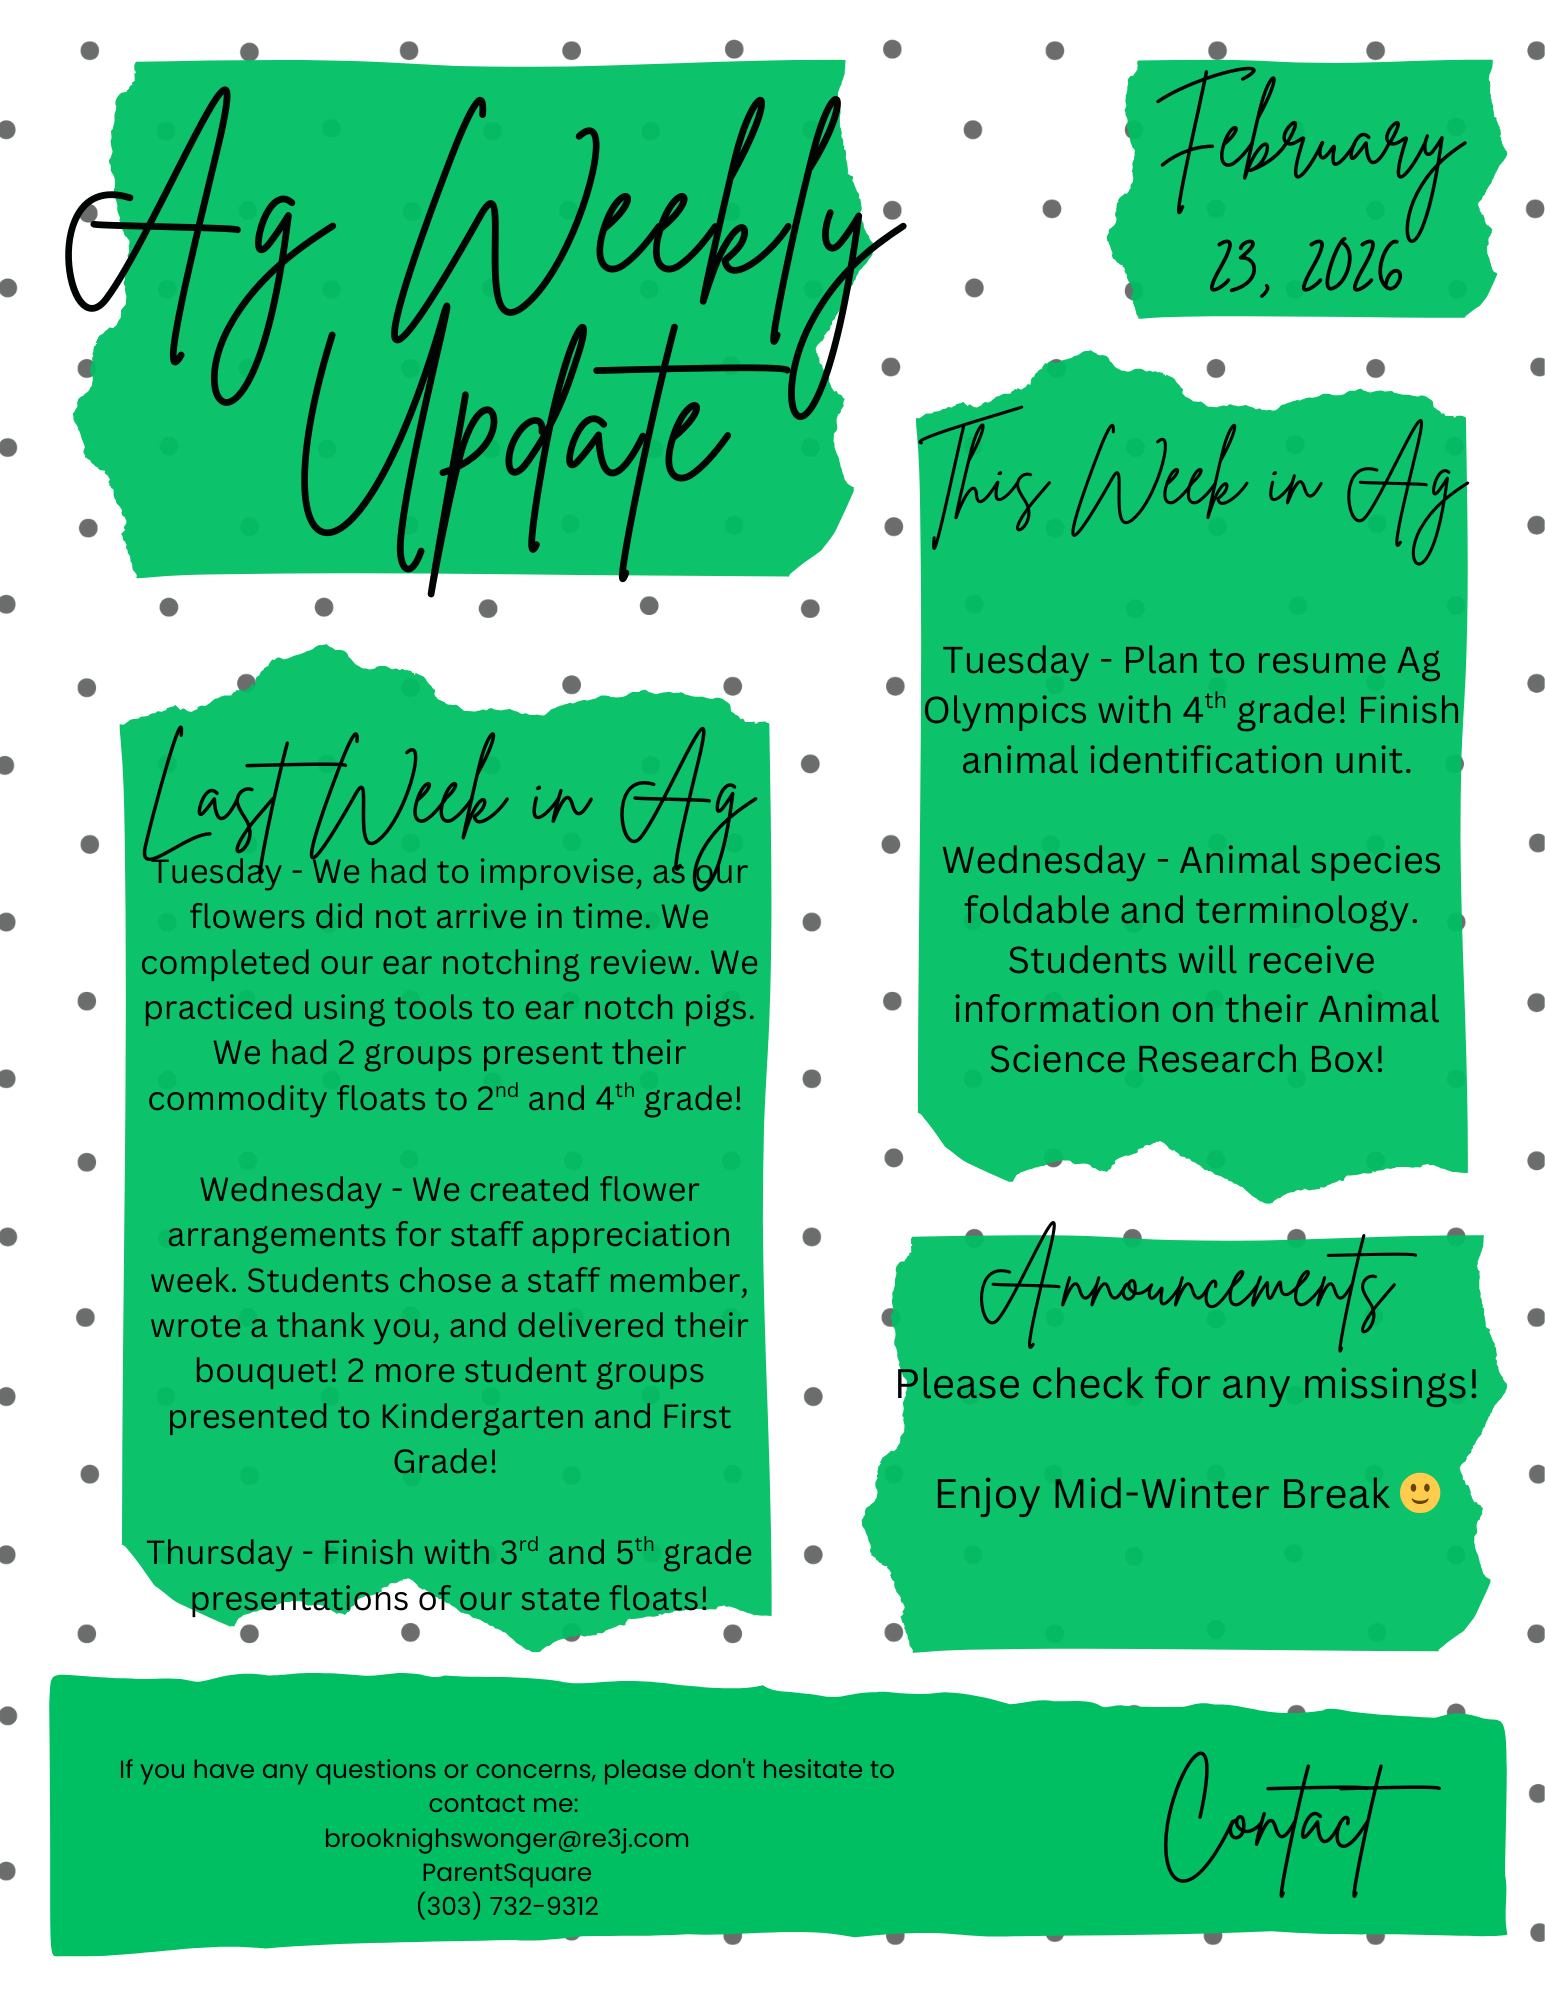 Ag Weekly
Update
February
23, 2026
Last Week in Ag
Tuesday - We had to improvise, as our
flowers did not arrive in time. We
completed our ear notching review. We
practiced using tools to ear notch pigs.
We had 2 groups present their
commodity floats to 2nd and 4th grade!
Wednesday - We created flower
arrangements for staff appreciation
week. Students chose a staff member,
wrote a thank you, and delivered their
bouquet! 2 more student groups
presented to Kindergarten and First
Grade!
Thursday - Finish with 3rd and 5th grade
presentations of our state floats!
This Week in Ag
Tuesday - Plan to resume Ag
Olympics with 4th grade! Finish
animal identification unit.
Wednesday - Animal species
foldable and terminology.
Students will receive
information on their Animal
Science Research Box!
Announcements
Please check for any missings!
Enjoy Mid-Winter Break 🙂
If you have any questions or concerns, please don't hesitate to
contact me:
brooknighswonger@re3j.com
ParentSquare
(303) 732-9312
Contact